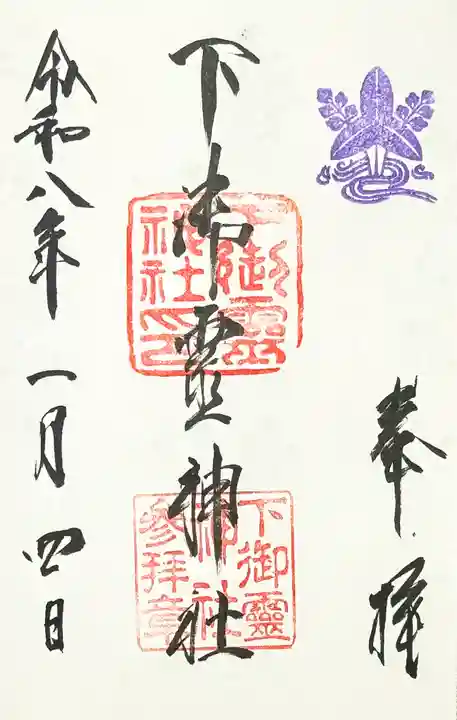 奉拝
下御霊神社
下御靈神社印
下御靈神社参拝章
令和八年一月四日